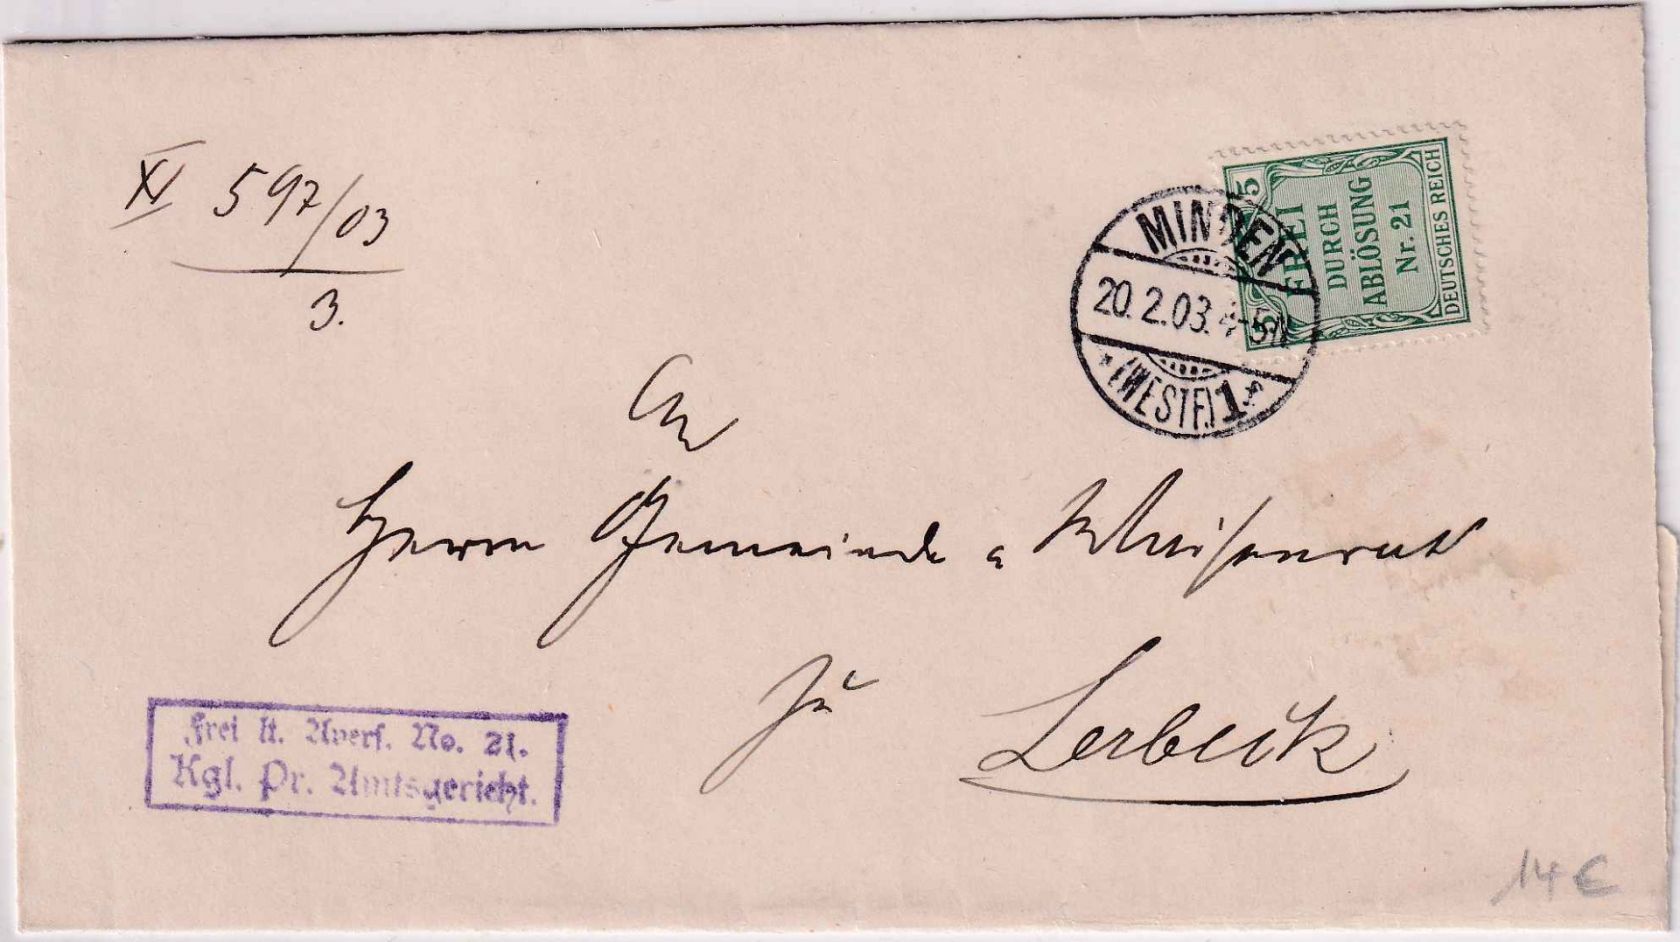 XV 597/03
3.
5 5
FREI
DURCH
ABLÖSUNG
Nr. 21
DEUTSCHES REICH
MINDEN
20.2.03. 4-5N
* (WESTF.) 1 f
An
Herrn Gemeinde-Waisenrat
zu Lerbeck
Frei lt. Avers. No. 21.
Kgl. Pr. Amtsgericht.
14 €